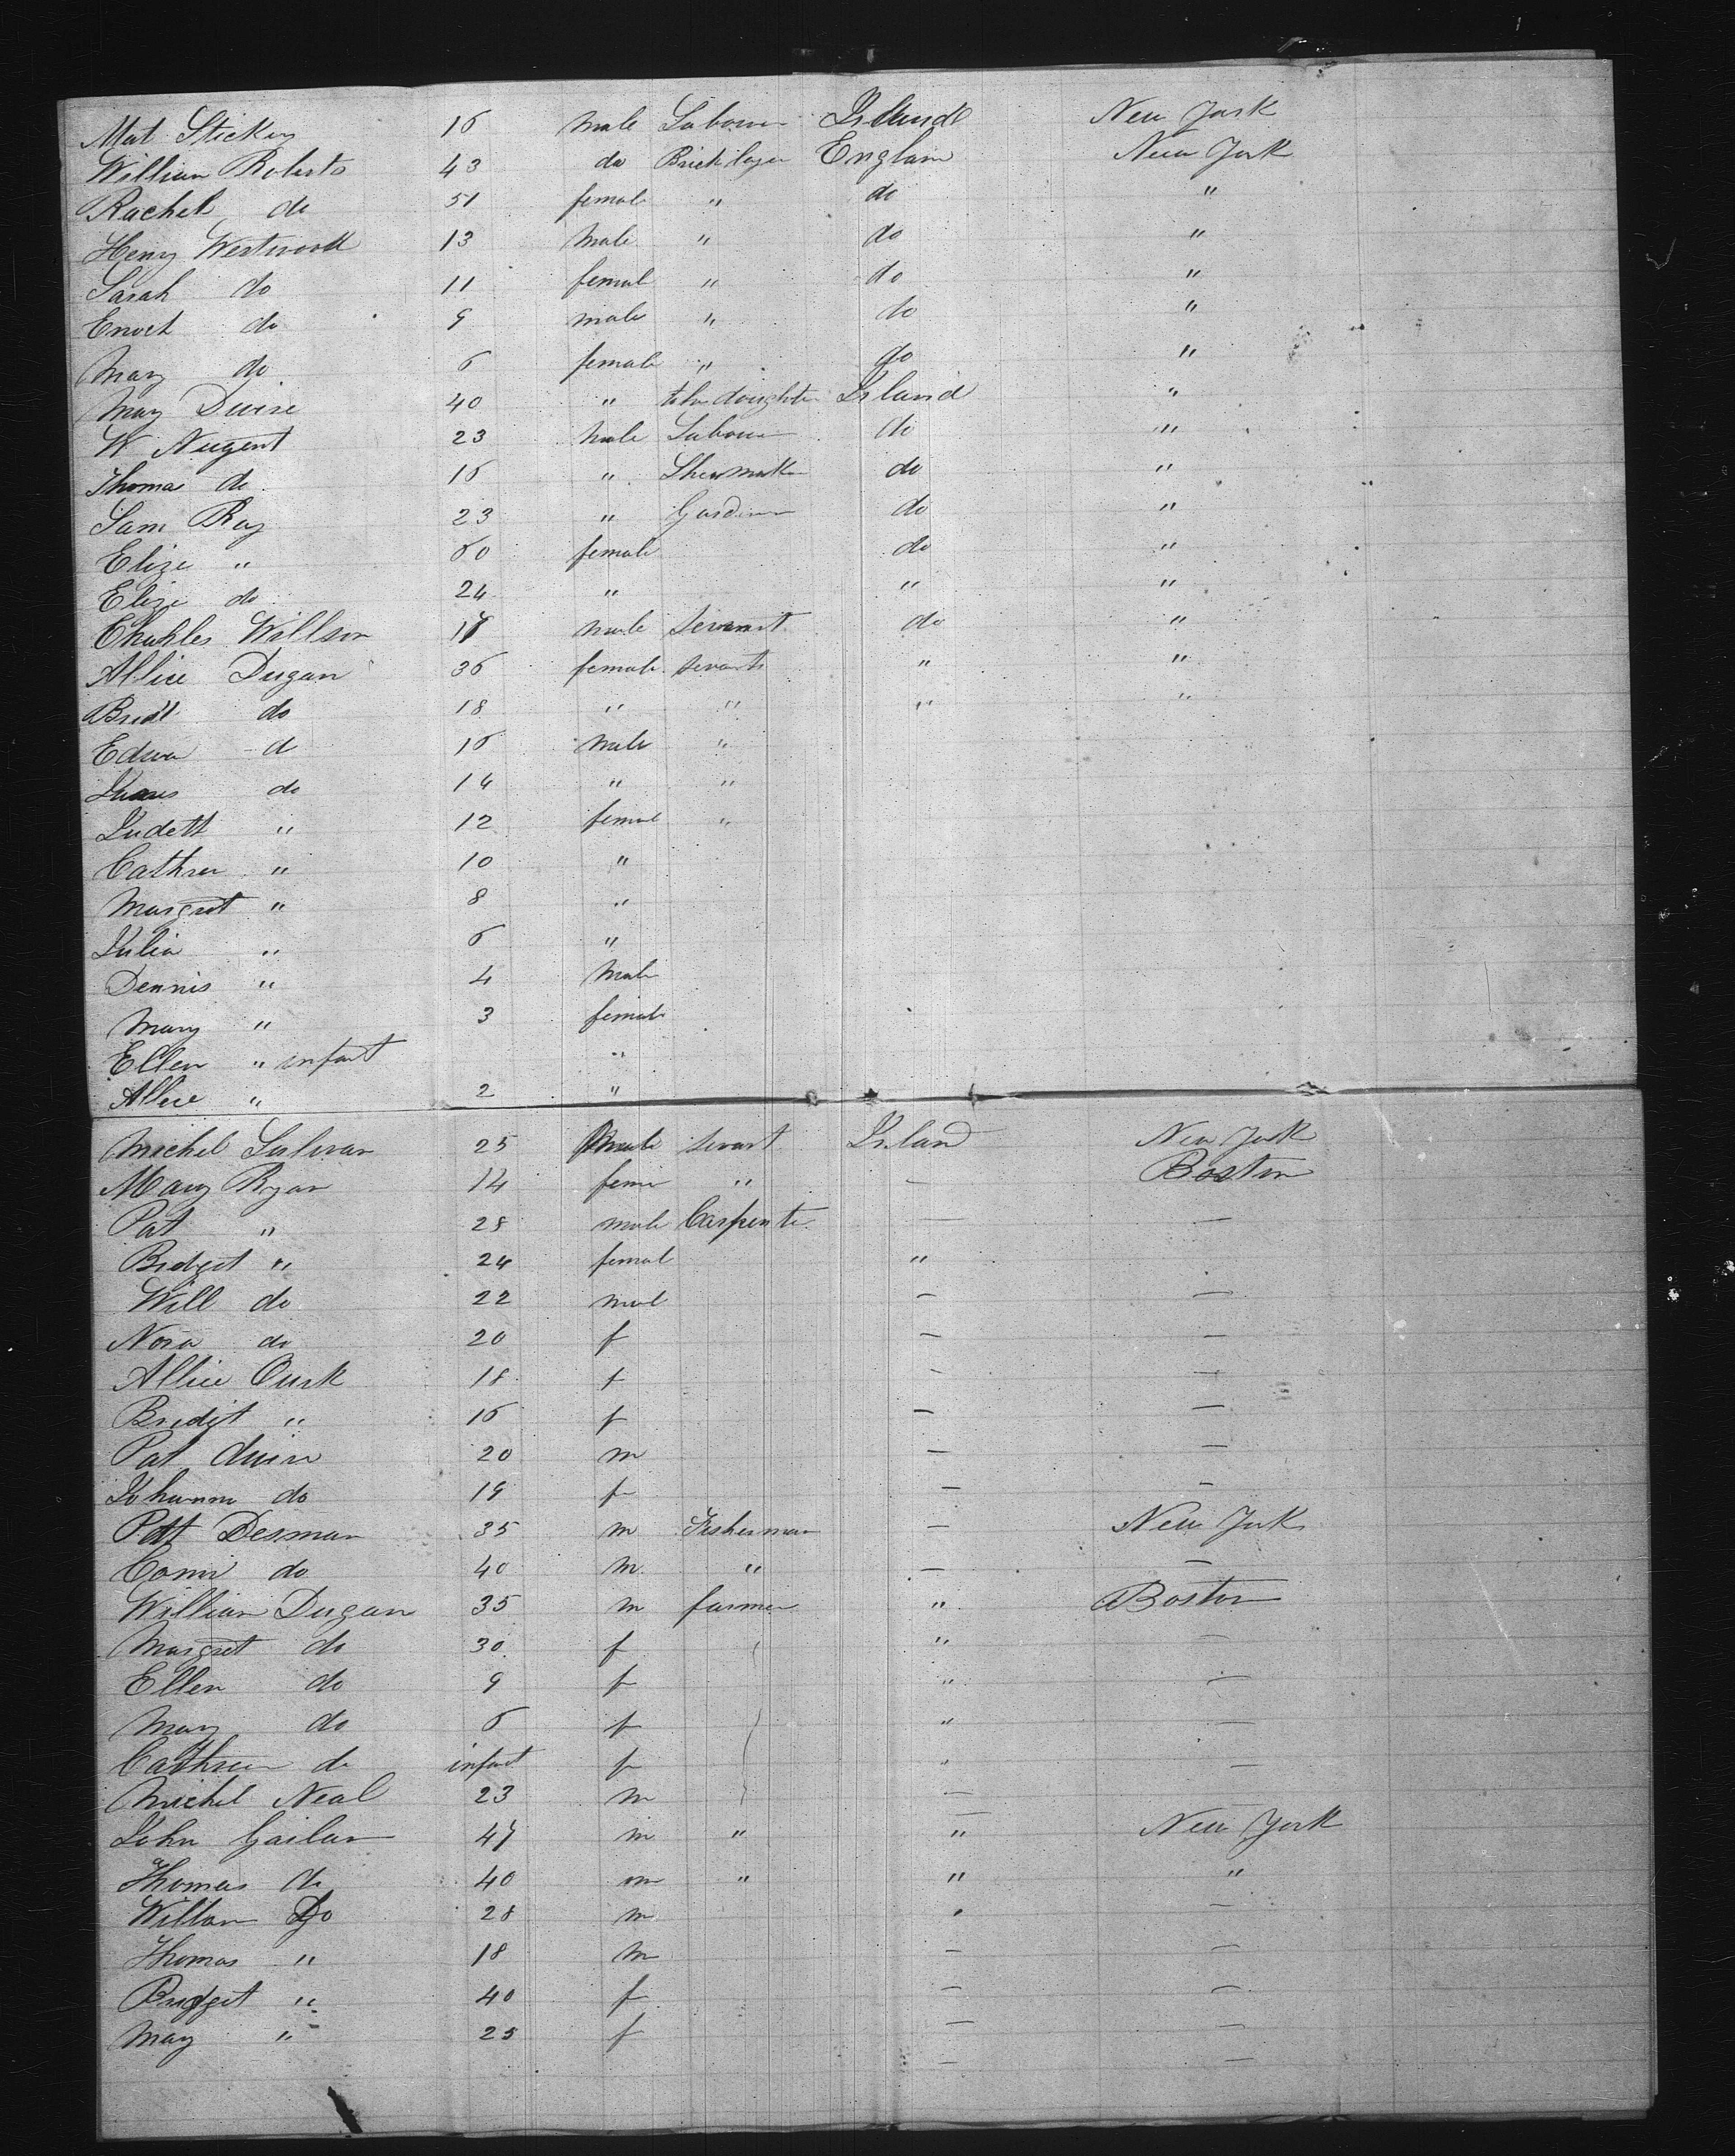 Mat Stickey 16 male Labour Irlund New York
William Roberts 43 do Bricklayer Englan New York
Rachel do 51 female " do "
Heny Westwood 13 male " do "
Sarah do 11 femal " do "
Enoch do 9 male " do "
Mary do 6 female " do "
May Dwire 40 " daughter Irland "
W Nugent 23 male Labour do "
Thomas do 16 " Shoemak do "
Sam Ray 23 " Gardiner do "
Elize " 60 female do "
Elize do 24 " " "
Chahles Willson 17 male servant do "
Allice Dugan 36 female servants " "
Bridt do 18 " " " "
Edwa d 16 male "
do 14 " "
Judett " 12 femal "
Cathren " 10 "
Margret " 8 "
Julia " 6 "
Dennis " 4 male
Mary " 3 female
Ellen " infant "
Allice " 2 "
Michel Sulivan 25 male sevant Irland New York
Mary Ryan 14 feme " — Boston
Pat " 28 male Carpente — —
Bridget " 24 femal "
Will do 22 mal — —
Nora do 20 f — —
Allice Ourk 18 f — —
Bridgt " 16 f — —
Pat 20 m — —
Johanna do 19 f — —
Patt Desman 35 m Fisherman — New York
do 40 m " — —
William Dugan 35 m farmer " Boston
Margret do 30 f " —
Ellen do 9 f " —
May do 6 f " —
Cathren do infant f " —
Michel Neal 23 m — —
John Gailan 47 m " " New York
Thomas do 40 m " " "
Willam Do 28 m " —
Thomas " 18 m — —
Bridget " 40 f — —
May " 25 f — —
— —